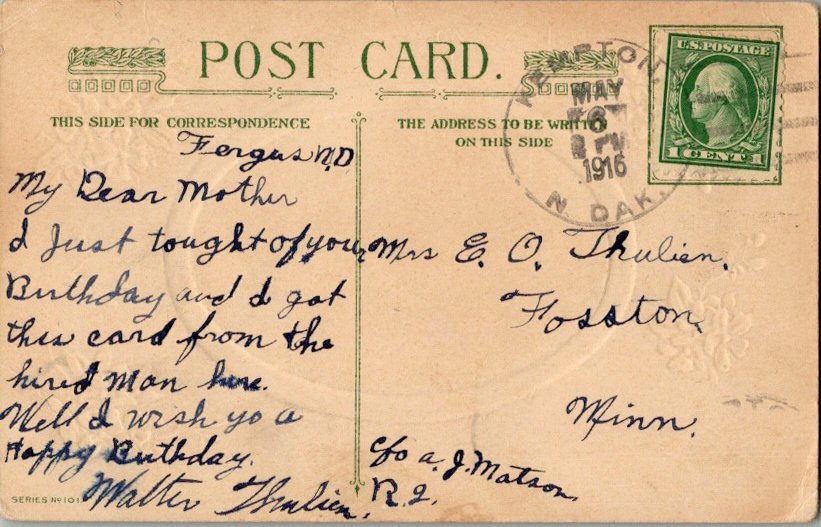 POST CARD.
THIS SIDE FOR CORRESPONDENCE
THE ADDRESS TO BE WRITTEN
ON THIS SIDE
KEMPTON,
MAY
6
PM
1916
N. DAK.
U.S. POSTAGE
1 CENT 1
Fergus N.D
My Dear Mother
I Just tought of your
Birthday and I got
this card from the
hired man here.
Well I wish yo a
Happy Birthday.
Walter Thulien.
Mrs E. O. Thulien.
Fosston,
Minn.
c/o A. J. Matson,
R. 2.
SERIES No 101